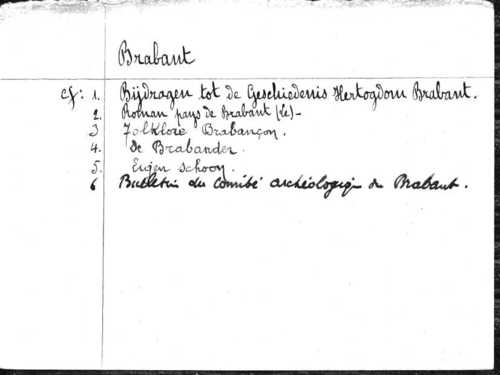 Brabant
cf: 1. Bijdragen tot de Geschiedenis Hertogdom Brabant.
2. Roman pays de Brabant (le) -
3 Folklore Brabançon.
4. De Brabander.
5. Eigen Schoon.
6 Bulletin du Comité archéologique du Brabant.